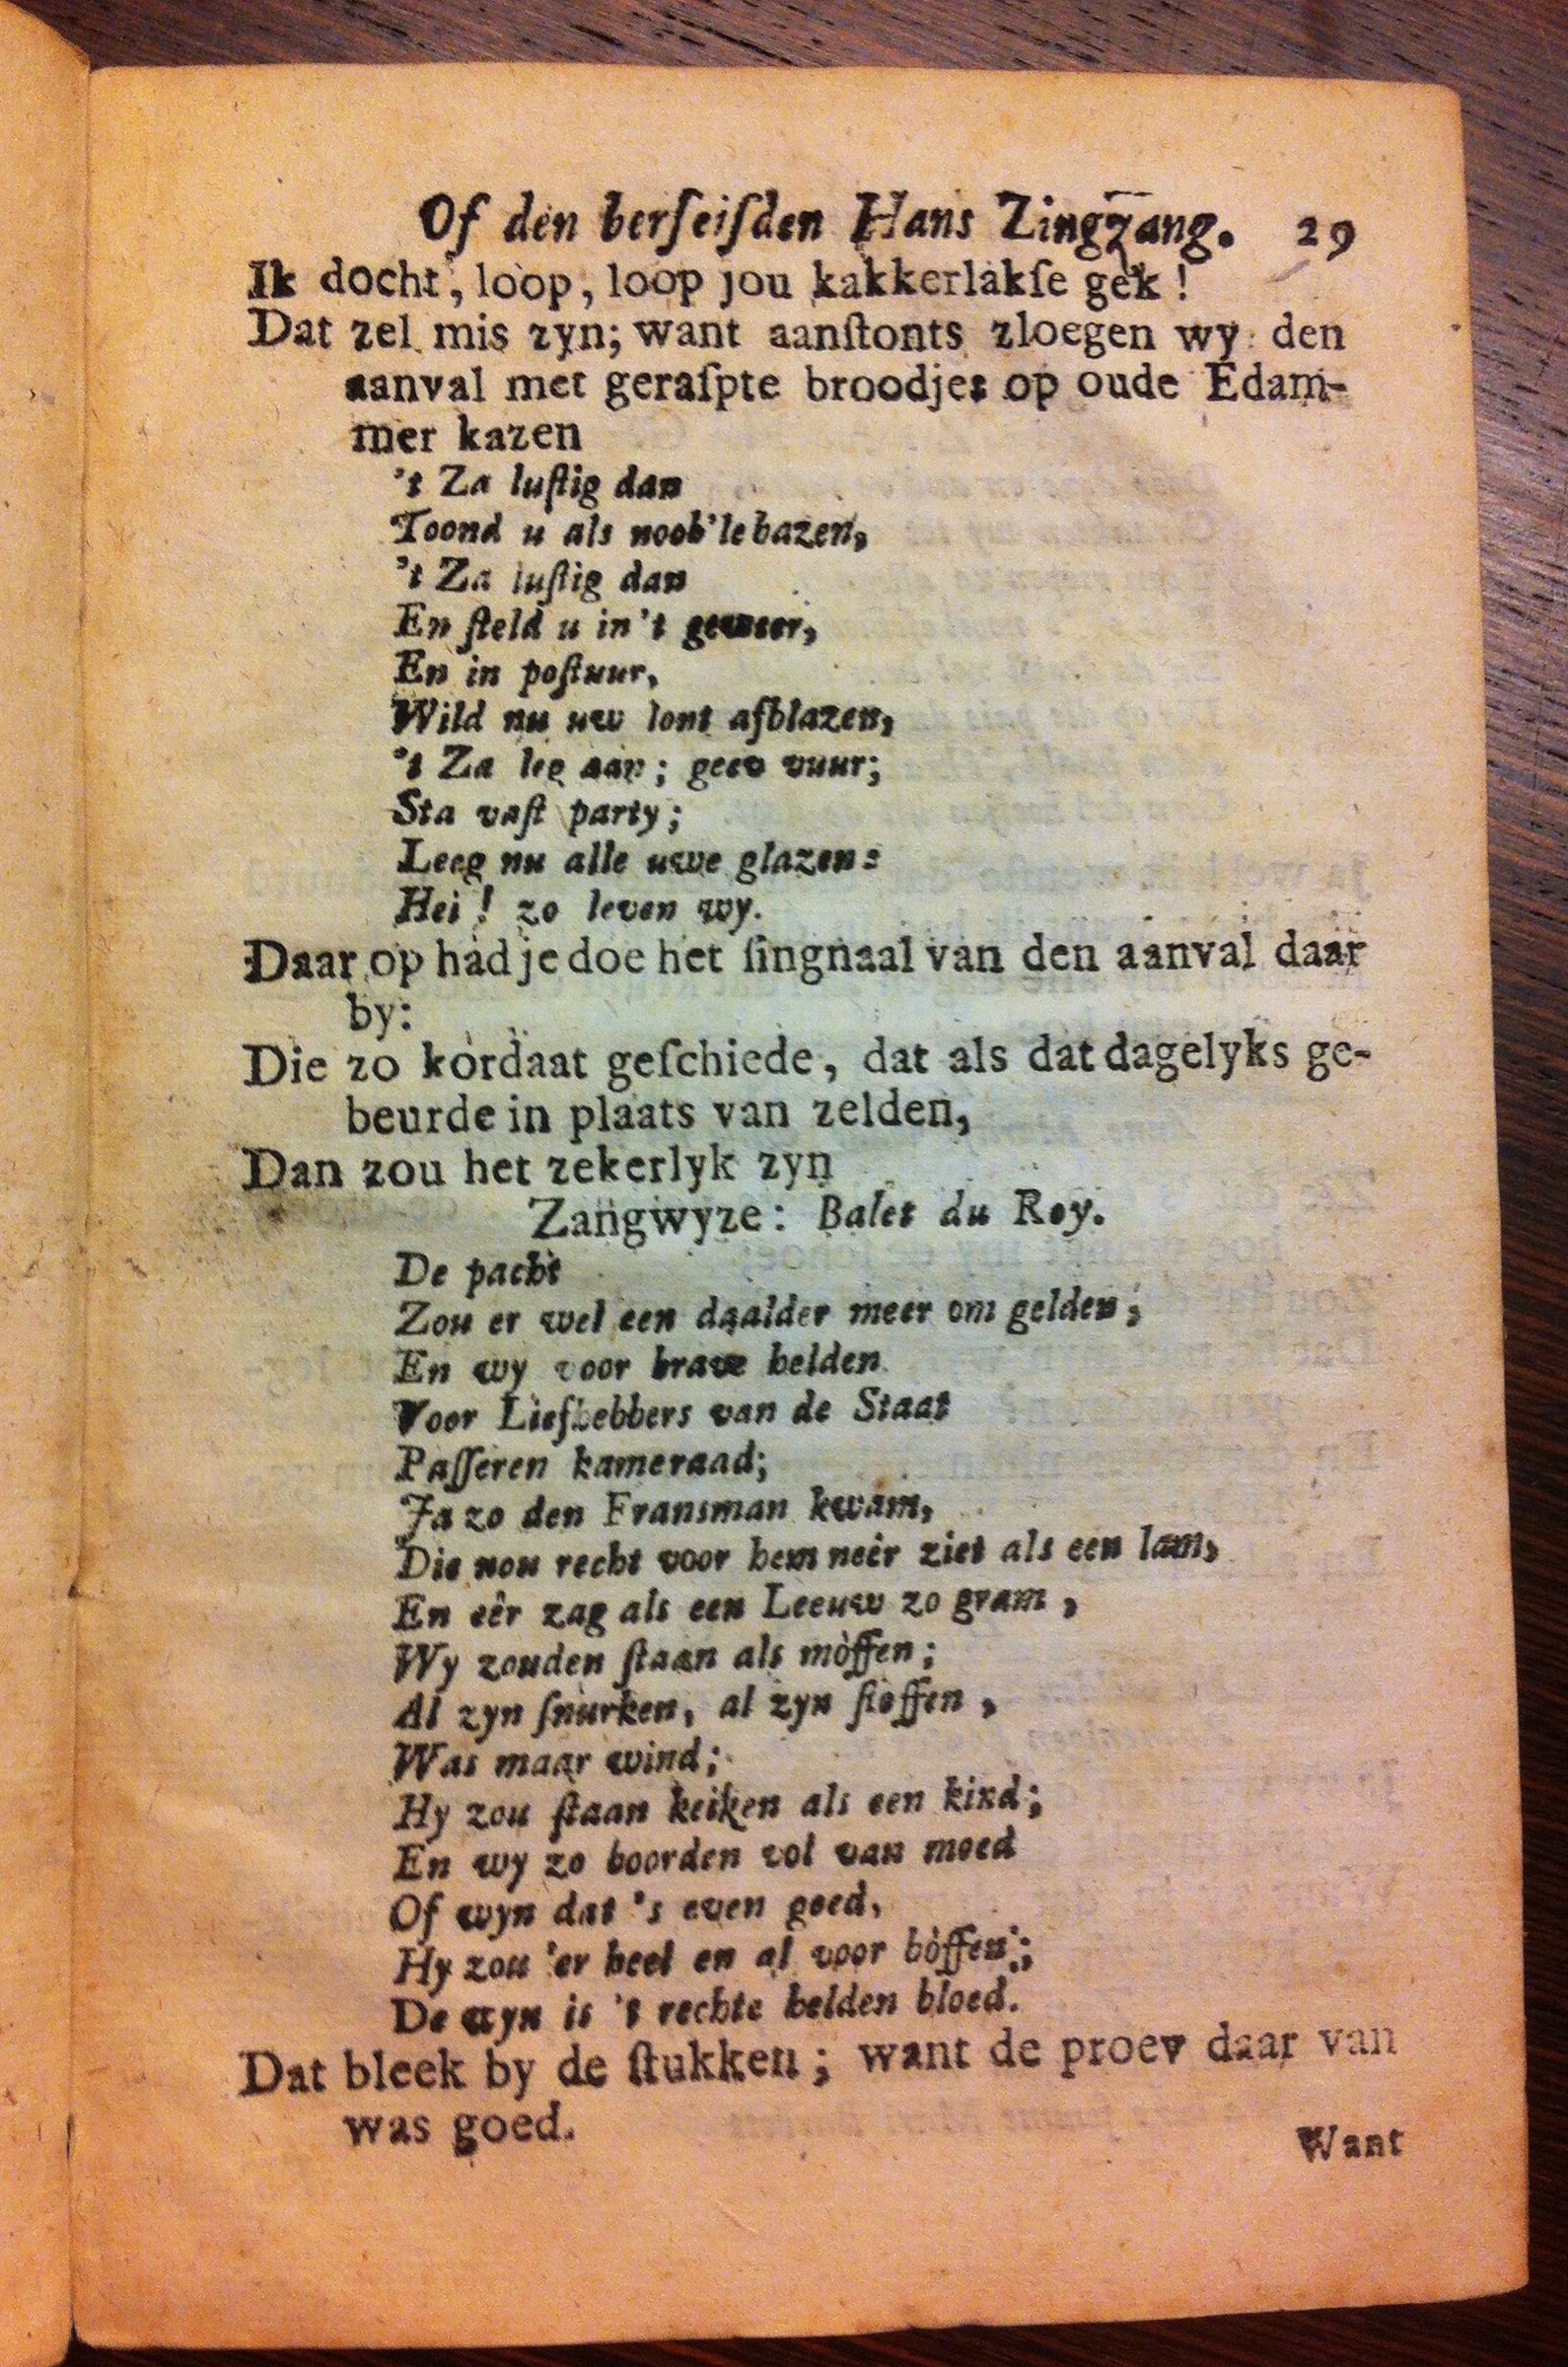 Of den herſeiſden Hans Zingzang. 29
Ik docht, loop, loop jou kakkerlakſe gek!
Dat zel mis zyn; want aanſtonts zloegen wy den
aanval met geraſpte broodjes op oude Edam-
mer kazen
't Za luſtig dan
Toond u als noob'le bazen,
't Za luſtig dan
En ſteld u in't geweer,
En in poſtuur,
Wild nu uw lont afblazen,
't Za leg aan; geev vuur;
Sta vaſt party;
Leeg nu alle uwe glazen:
Hei! zo leven wy.
Daar op had je doe het ſingnaal van den aanval daar
by:
Die zo kordaat geſchiede, dat als dat dagelyks ge-
beurde in plaats van zelden,
Dan zou het zekerlyk zyn
Zangwyze: Balet du Roy.
De pacht
Zou er wel een daalder meer om gelden,
En wy voor brave helden
Voor Liefhebbers van de Staat
Paſſeren kameraad;
Ja zo den Fransman kwam,
Die nou recht voor hem neêr ziet als een lam,
En eêr zag als een Leeuw zo gram,
Wy zouden ſtaan als mòffen;
Al zyn ſnurken, al zyn ſtoffen,
Was maar wind;
Hy zou ſtaan keiken als een kind;
En wy zo boorden vol van moed
Of wyn dat 's even goed,
Hy zou 'er heel en al voor bòffen;
De wyn is 't rechte helden bloed.
Dat bleek by de ſtukken; want de proev daar van
was goed.
Want